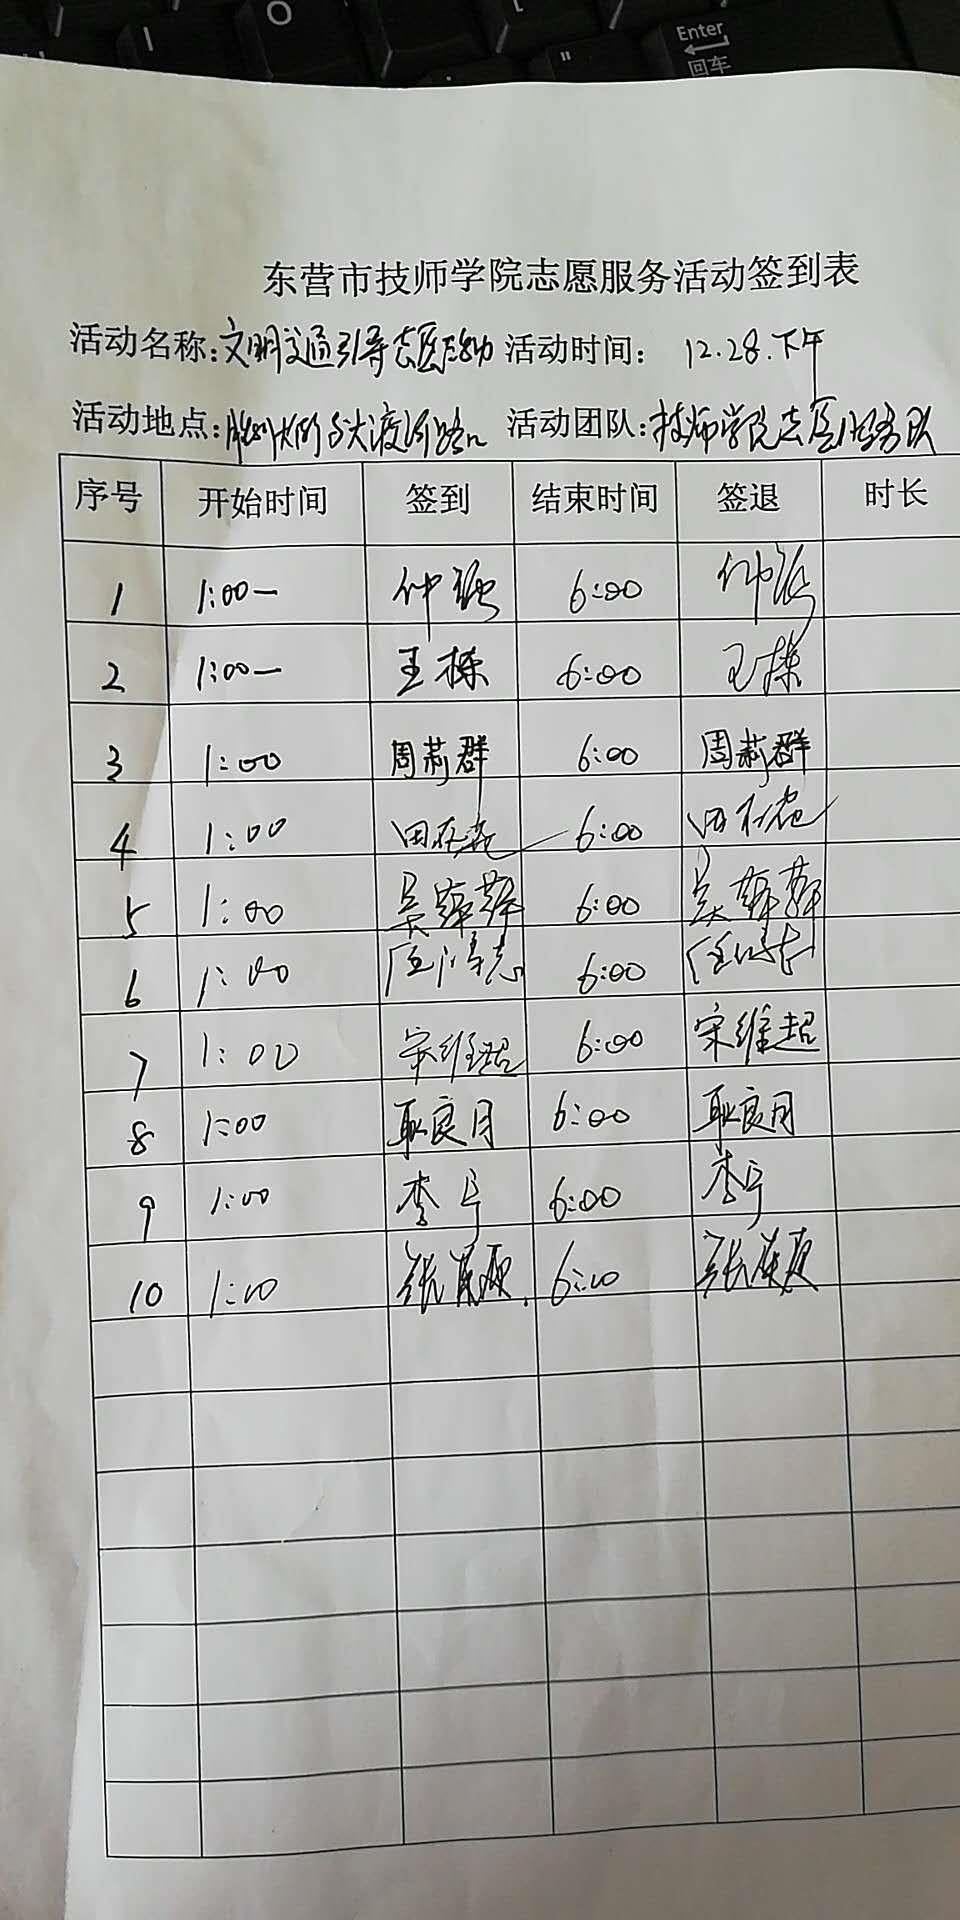 O
Enter
回车
东营市技师学院志愿服务活动签到表
活动名称:文明交通引导志愿活动 活动时间: 12.28.下午
活动地点: 活动团队:技师学院志愿服务队
序号 开始时间 签到 结束时间 签退 时长
1 1:00— 仲 6:00 仲
2 1:00— 王栋 6:00 王栋
3 1:00 周莉群 6:00 周莉群
4 1:00 田 6:00 田
5 1:00 吴 6:00 吴
6 1:00 6:00
7 1:00 宋维超 6:00 宋维超
8 1:00 耿良月 6:00 耿良月
9 1:00 李宁 6:00 李宁
10 1:00 张 6:00 张